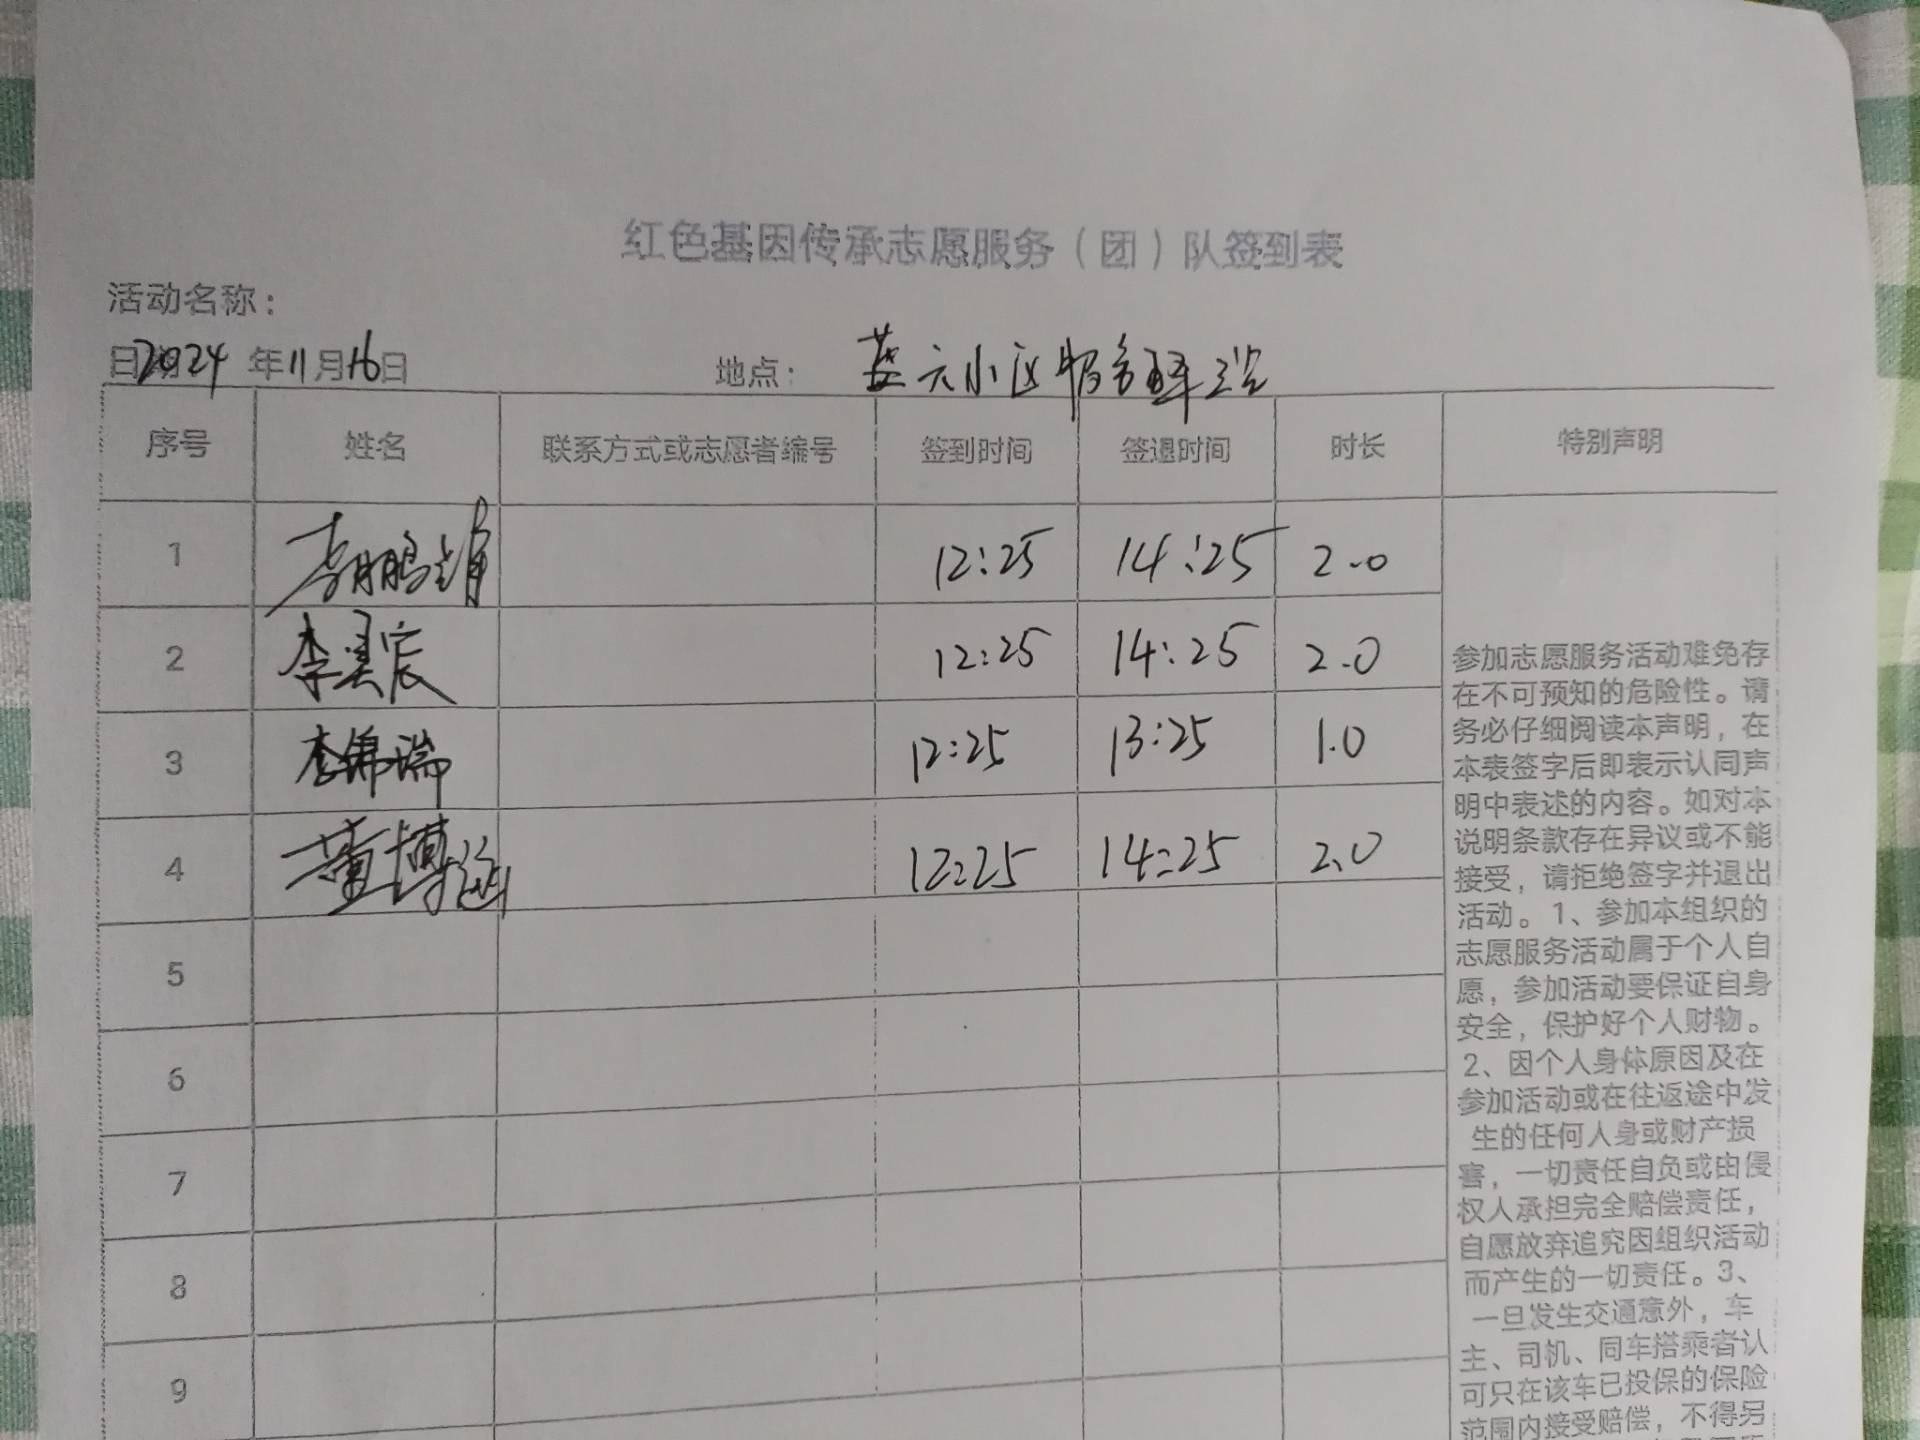 红色基因传承志愿服务（团）队签到表
活动名称：
日期2024 年11月16日 地点： 小区服务
序号 姓名 联系方式或志愿者编号 签到时间 签退时间 时长 特别声明
1 李鹏 12:25 14:25 2.0
2 李昊宸 12:25 14:25 2.0
3 李锦瑞 12:25 13:25 1.0
4 董博涵 12:25 14:25 2.0
5
6
7
8
9
参加志愿服务活动难免存
在不可预知的危险性。请
务必仔细阅读本声明，在
本表签字后即表示认同声
明中表述的内容。如对本
说明条款存在异议或不能
接受，请拒绝签字并退出
活动。1、参加本组织的
志愿服务活动属于个人自
愿，参加活动要保证自身
安全，保护好个人财物。
2、因个人身体原因及在
参加活动或在往返途中发
生的任何人身或财产损
害，一切责任自负或由侵
权人承担完全赔偿责任，
自愿放弃追究因组织活动
而产生的一切责任。3、
一旦发生交通意外，车
主、司机、同车搭乘者认
可只在该车已投保的保险
范围内接受赔偿，不得另